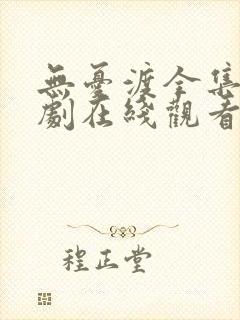 無憂渡全集
劇在綫觀看
程正堂